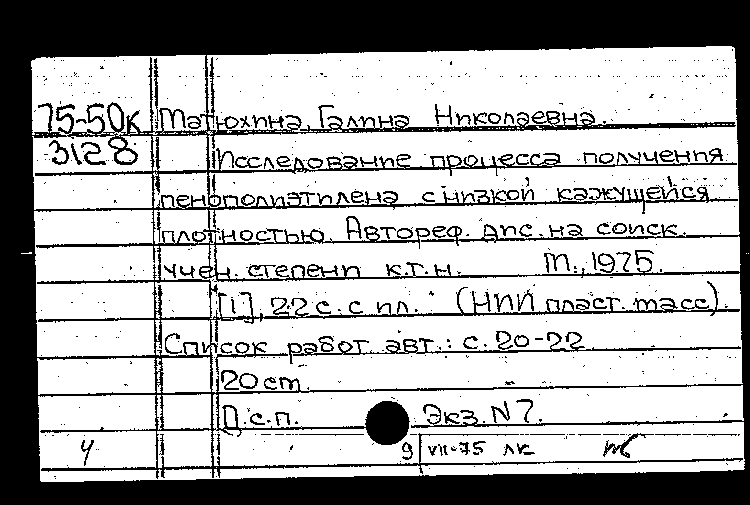 75-50к Матюхина, Галина Николаевна.
3128 Исследование процесса получения
пенополиэтилена с низкой кажущейся
плотностью. Автореф. дис. на соиск.
учен. степени к.т.н. М., 1975.
[1], 22 с. с ил. (НИИ пласт. масс).
Список работ авт.: с. 20-22
20 см.
Д.с.п. Экз. N 7.
4 9 VII-75 ЛК